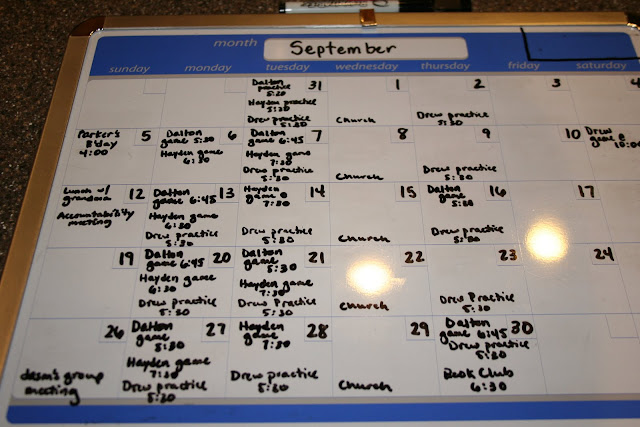 month September
sunday monday tuesday wednesday thursday friday saturday
31
Dalton
practice
5:30
Hayden practice
5:30
Drew practice
5:30
1
Church
2
Drew practice
5:30
3
4
Parker's
B'day
4:00
5
Dalton
game 5:30
Hayden game
6:30
6
Dalton
game 6:45
Hayden game
7:30
Drew practice
5:30
7
Church
8
Drew practice
5:30
9
10
Drew
game @
10:00
Lunch w/
grandma
Accountability
meeting
12
Dalton
game 6:45
Hayden game
6:30
Drew practice
5:30
13
Hayden
game @
7:30
Drew practice
5:30
14
Church
15
Dalton
game
5:30
Drew practice
5:30
16
17
19
Dalton
game 6:45
Hayden game
6:30
Drew practice
5:30
20
Dalton
game
5:30
Hayden game
7:30
Drew Practice
5:30
21
Church
22
Drew Practice
5:30
23
24
26
group
meeting
Dalton
game
5:30
Hayden game
7:30
Drew practice
5:30
27
Hayden
game
7:30
Drew practice
5:30
28
Church
29
Dalton
game 6:45
Drew practice
5:30
Book Club
6:30
30